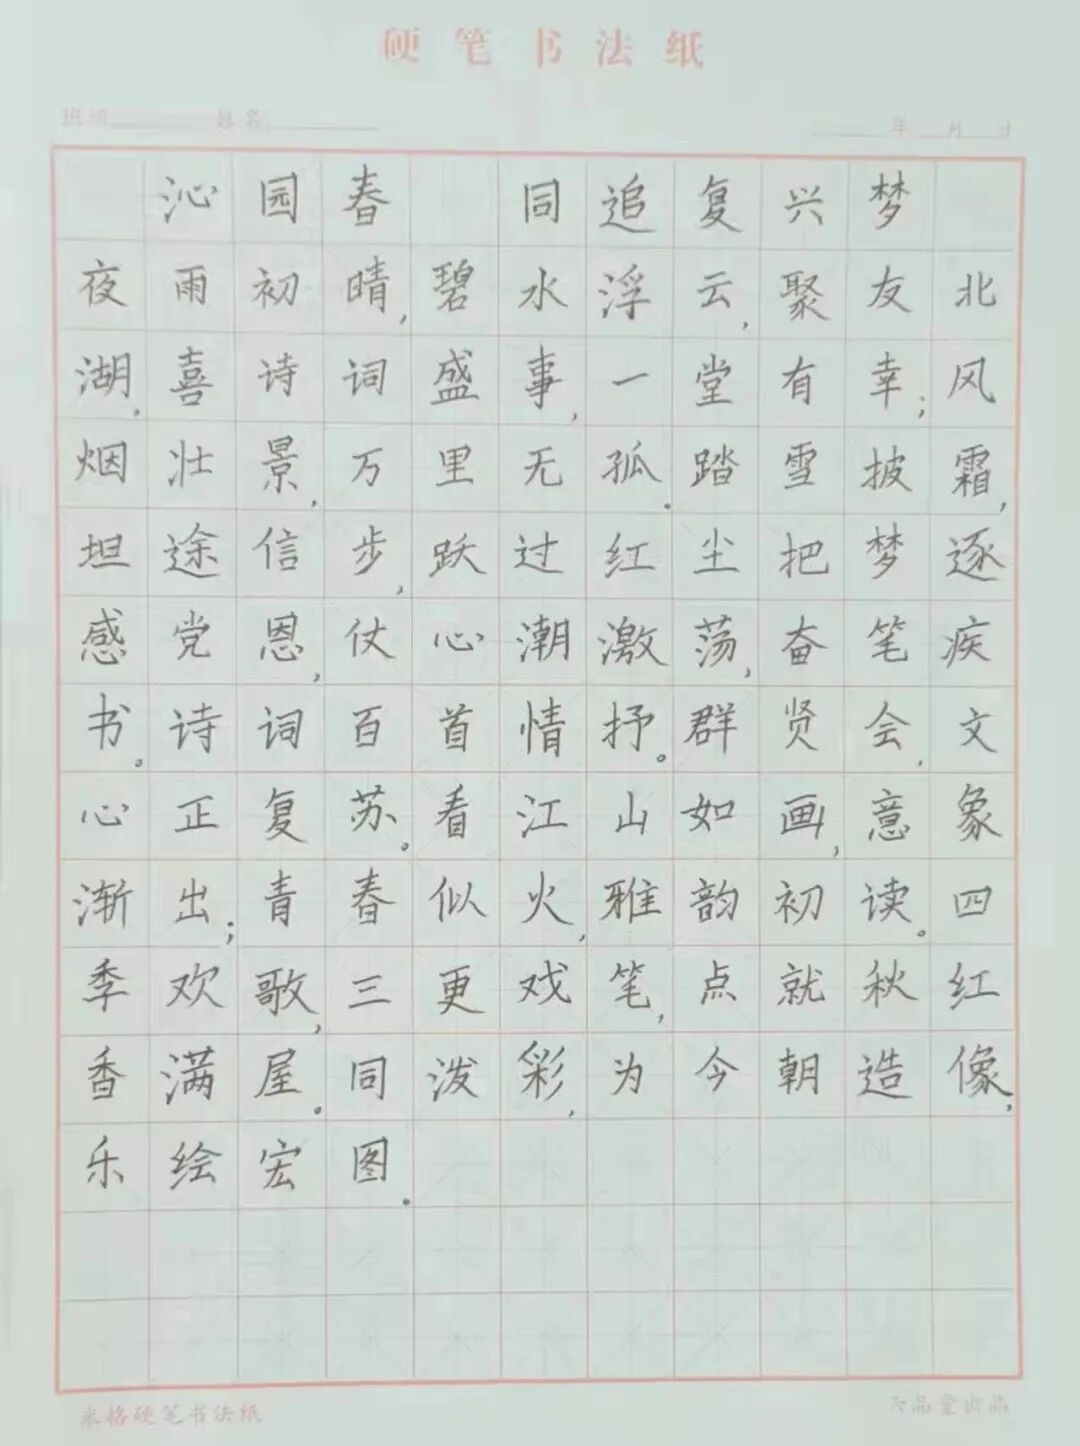 硬笔书法纸
班级 姓名 年 月 日
沁园春 同追复兴梦
夜雨初晴,碧水浮云,聚友北
湖。喜诗词盛事,一堂有幸;风
烟壮景,万里无孤。踏雪披霜,
坦途信步,跃过红尘把梦逐
感党恩,仗心潮激荡,奋笔疾
书。诗词百首情抒。群贤会,文
心正复苏。看江山如画,意象
渐出;青春似火,雅韵初读。四
季欢歌,三更戏笔,点就秋红
香满屋。同泼彩,为今朝造像,
乐绘宏图。
米格硬笔书法纸 六品堂出品